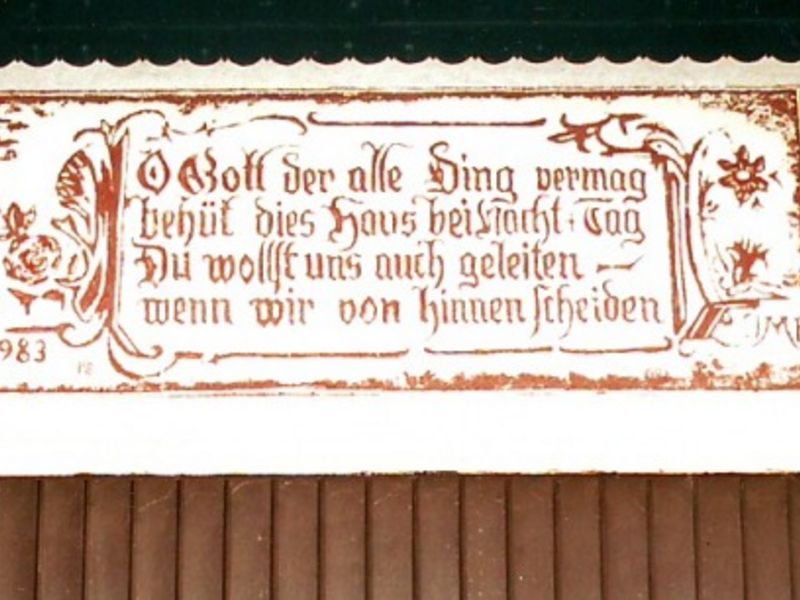 O Gott der alle Ding vermag
behüt dies Haus bei Nacht + Tag
Du wollst uns auch geleiten —
wenn wir von hinnen scheiden
983